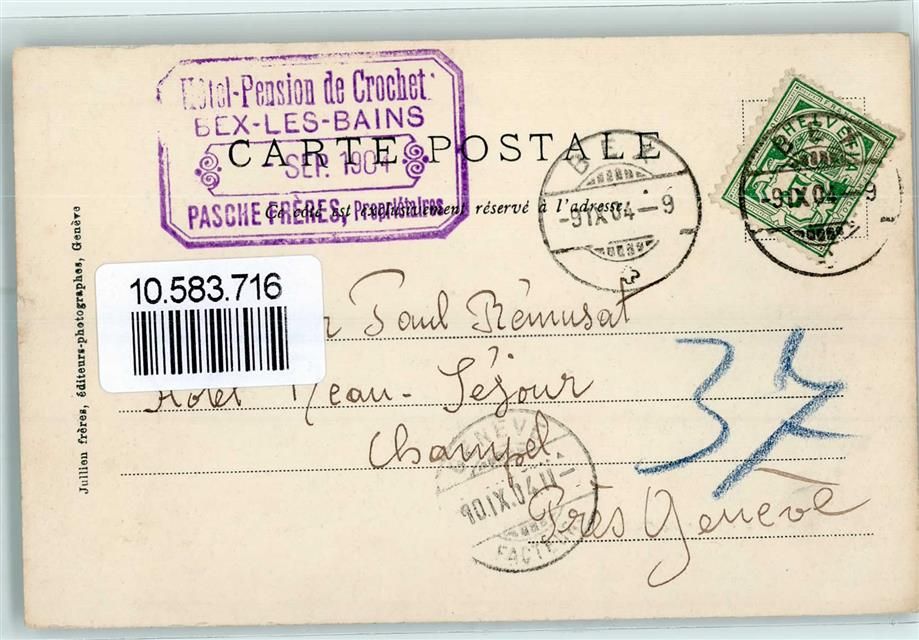 Hôtel-Pension de Crochet
BEX-LES-BAINS
SEP. 1904
PASCHE FRÈRES, Propriétaires
CARTE POSTALE
Ce côté est exclusivement réservé à l'adresse.
-9.IX.04-9
HELVETIA
-9.IX.04-9
Jullien frères, éditeurs-photographes, Genève
10.583.716
Paul Rémusat
Hôtel Beau-Séjour
Champel
Près Genève
37
GENÈVE
FACTEURS